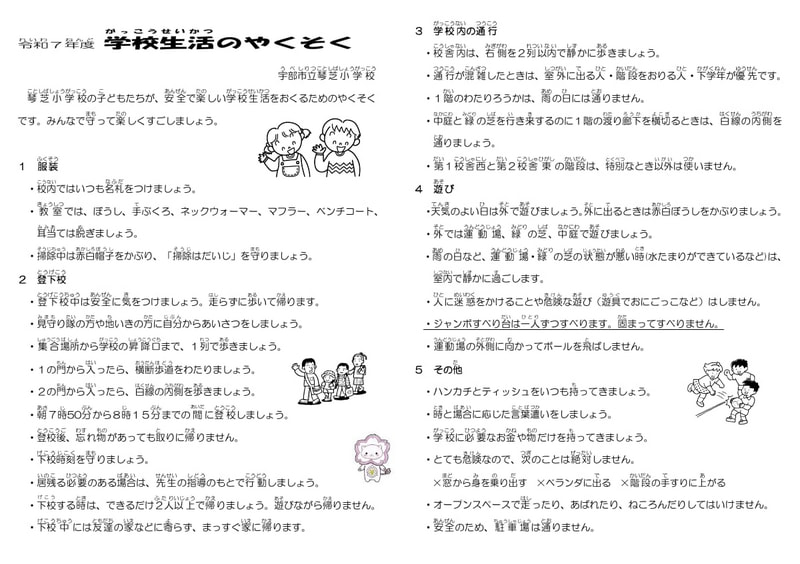 令和7年度 学校生活のやくそく
宇部市立琴芝小学校
琴芝小学校の子どもたちが、安全で楽しい学校生活をおくるためのやくそく
です。みんなで守って楽しくすごしましょう。
1 服装
・校内ではいつも名札をつけましょう。
・教室では、ぼうし、手ぶくろ、ネックウォーマー、マフラー、ベンチコート、
耳当ては脱ぎましょう。
・掃除中は赤白帽子をかぶり、「掃除はだいじ」を守りましょう。
2 登下校
・登下校中は安全に気をつけましょう。走らずに歩いて帰ります。
・見守り隊の方や地いきの方に自分からあいさつをしましょう。
・集合場所から学校の昇降口まで、1列で歩きましょう。
・1の門から入ったら、横断歩道をわたりましょう。
・2の門から入ったら、白線の内側を歩きましょう。
・朝7時50分から8時15分までの間に登校しましょう。
・登校後、忘れ物があっても取りに帰りません。
・下校時刻を守りましょう。
・居残る必要のある場合は、先生の指導のもとで行動しましょう。
・下校する時は、できるだけ2人以上で帰りましょう。遊びながら帰りません。
・下校中には友達の家などに寄らず、まっすぐ家に帰ります。
3 学校内の通行
・校舎内は、右側を2列以内で静かに歩きましょう。
・通行が混雑したときは、室外に出る人・階段をおりる人・下学年が優先です。
・1階のわたりろうかは、雨の日には通りません。
・中庭と緑の芝を行き来するのに1階の渡り廊下を横切るときは、白線の内側を
通りましょう。
・第1校舎西と第2校舎東の階段は、特別なとき以外は使いません。
4 遊び
・天気のよい日は外で遊びましょう。外に出るときは赤白ぼうしをかぶりましょう。
・外では運動場、緑の芝、中庭で遊びましょう。
・雨の日など、運動場・緑の芝の状態が悪い時(水たまりができているなど)は、
室内で静かに過ごします。
・人に迷惑をかけることや危険な遊び（遊具でおにごっこなど）はしません。
・ジャンボすべり台は一人ずつすべります。固まってすべりません。
・運動場の外側に向かってボールを飛ばしません。
5 その他
・ハンカチとティッシュをいつも持ってきましょう。
・時と場合に応じた言葉遣いをしましょう。
・学校に必要なお金や物だけを持ってきましょう。
・とても危険なので、次のことは絶対しません。
×窓から身を乗り出す ×ベランダに出る ×階段の手すりに上がる
・オープンスペースで走ったり、あばれたり、ねころんだりしてはいけません。
・安全のため、駐車場は通りません。